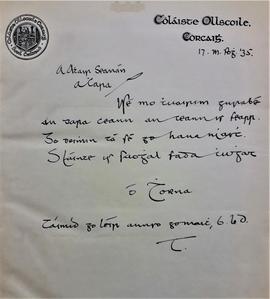 Coláiste Ollscoile,
Corcaigh.
17. M. Fóg '35.
A Athair Seanán
a Chara
Sé mo thuairim gurab é
an dara ceann an ceann is fearr.
Go deimhin tá sé go hana
Sláinte is saoghal fada chughat
Ó Thorna
Táimíd go léir annso go maith,
T.